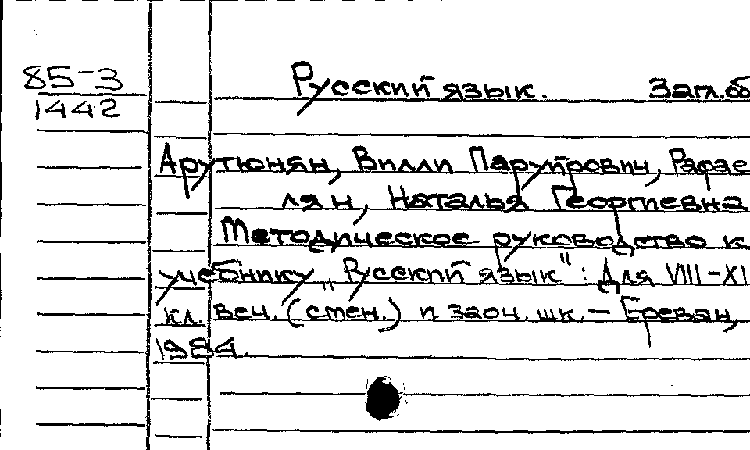 85-3 Русский язык. Загл.об
1442
Арутюнян, Вилли Паруйрович, Рафае
лян, Наталья Георгиевна
Методическое руководство к
учебнику „Русский язык": Для VIII-XI
кл. веч. (смен.) и заоч. шк. - Ереван,
1984.